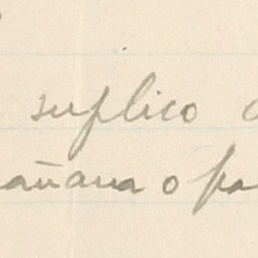 suplico
añana o pa